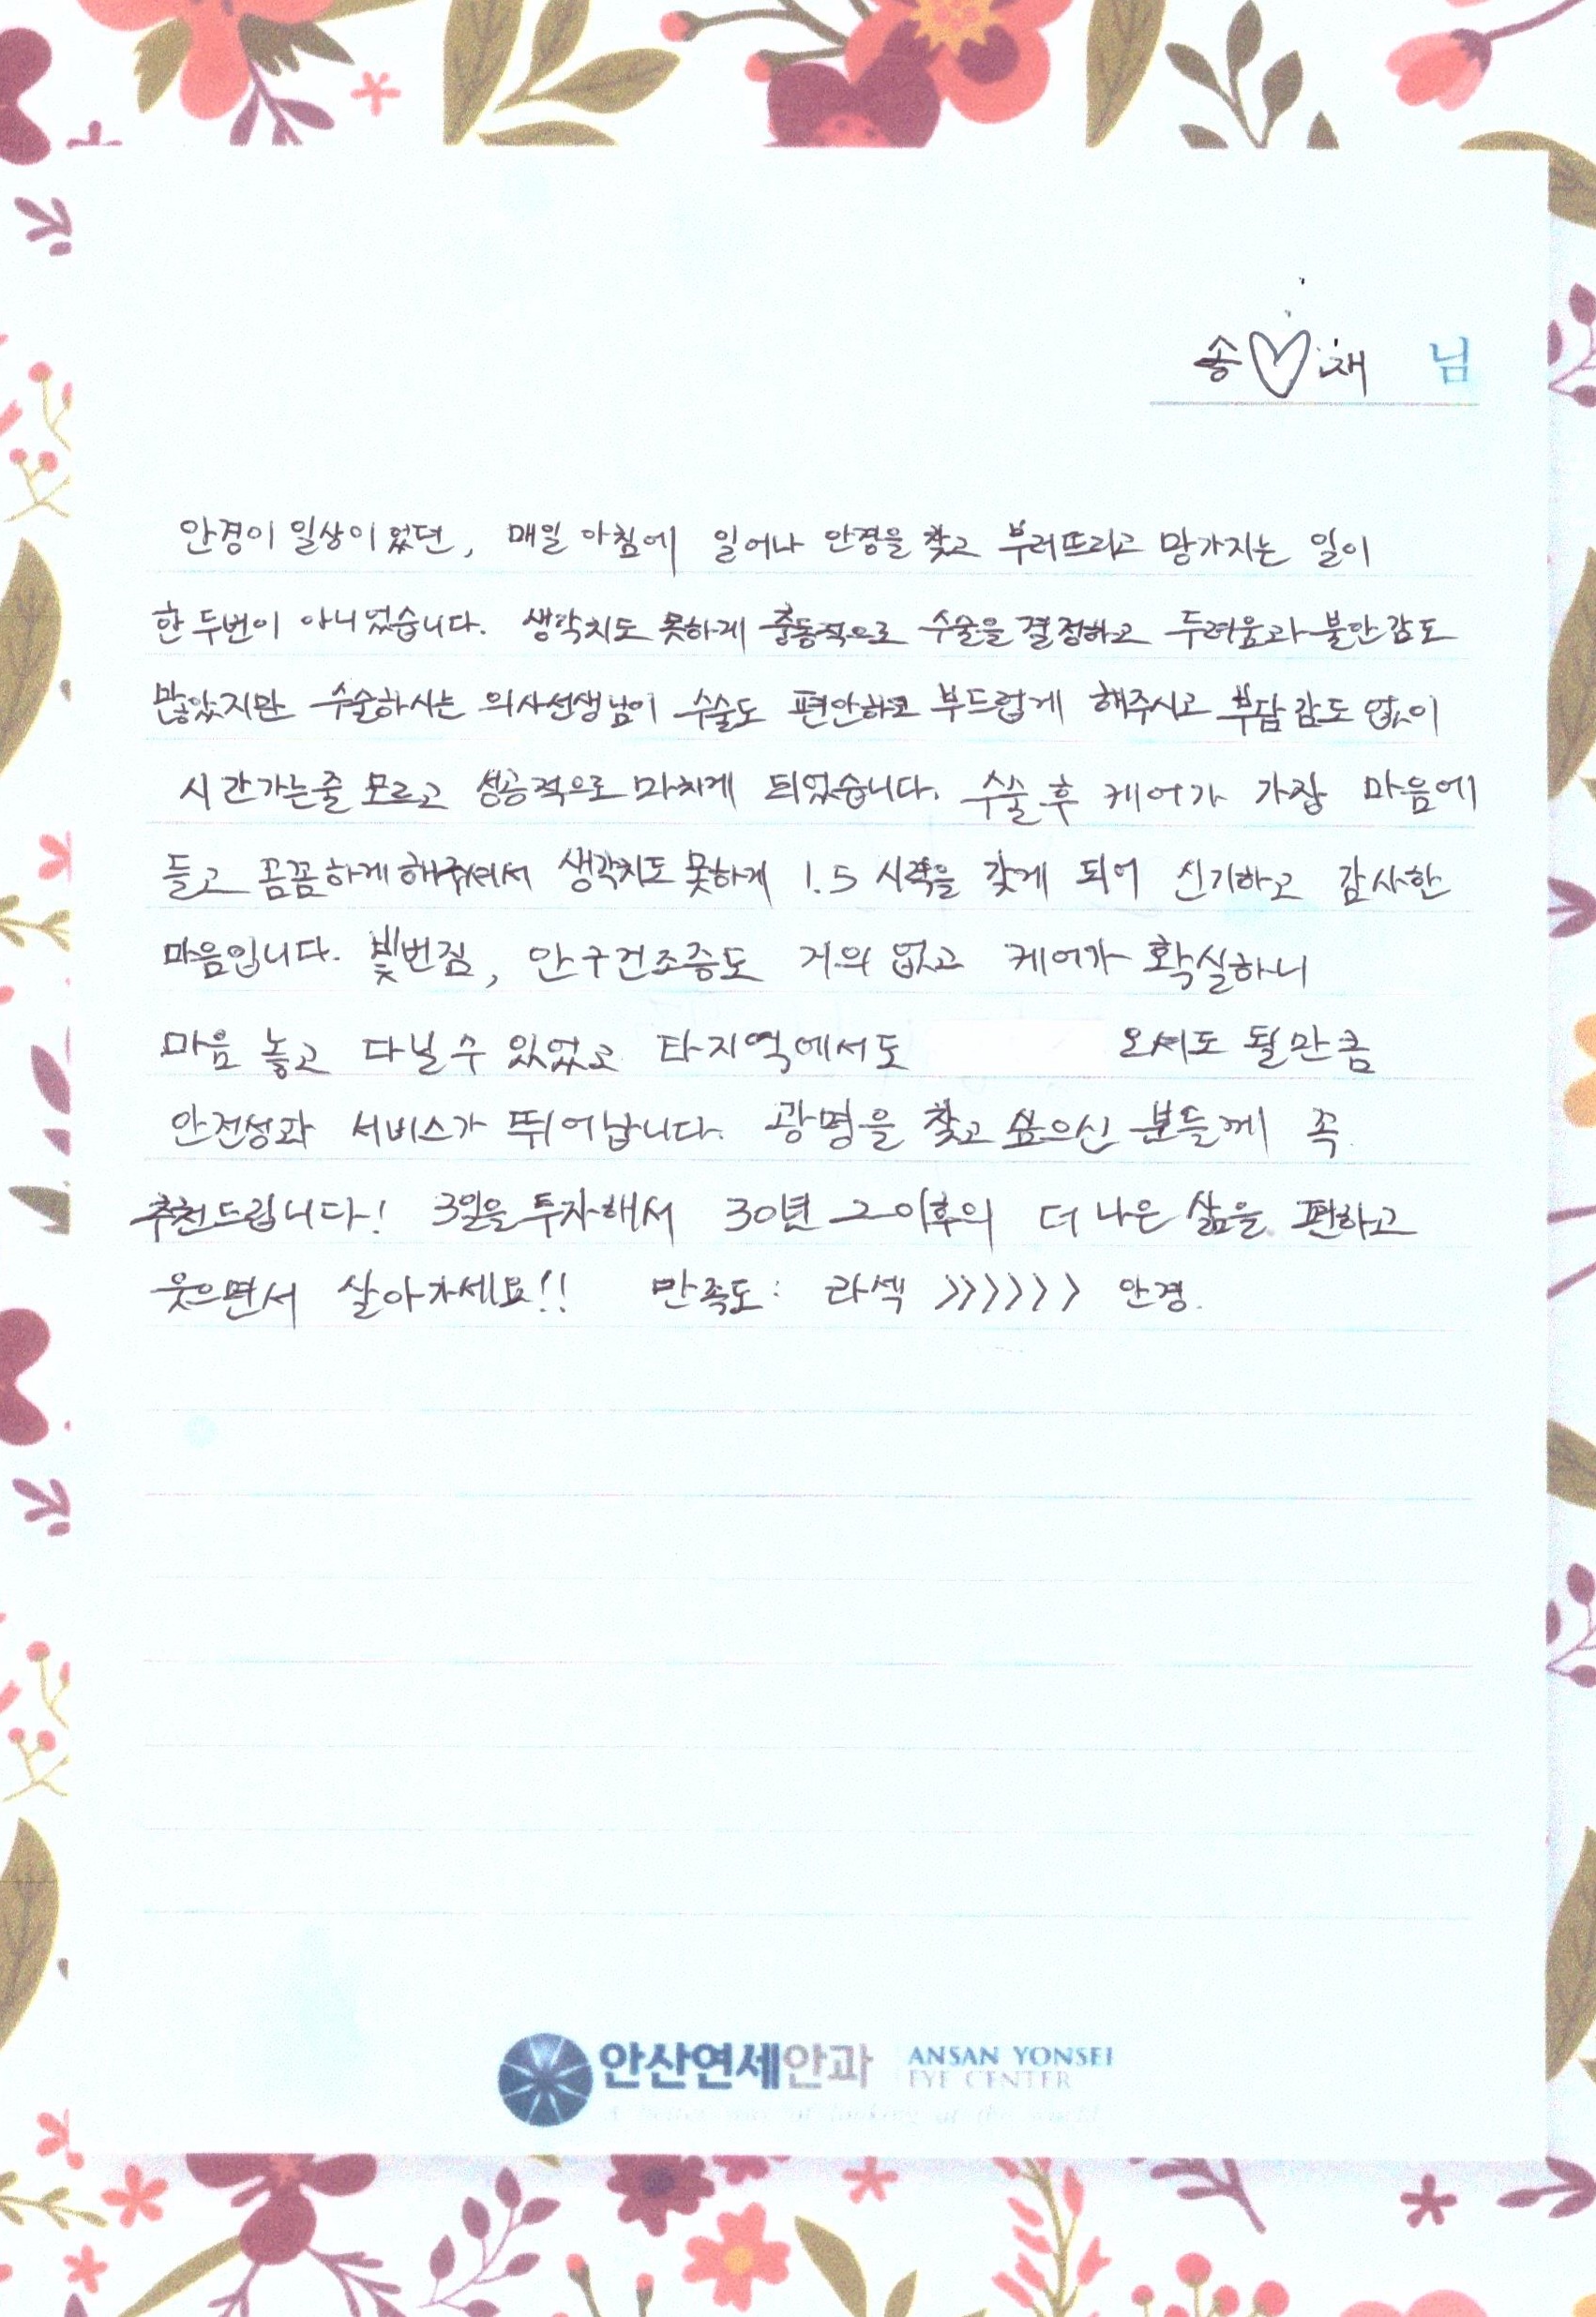 송♡채 님
안경이 일상이 었던, 매일 아침에 일어나 안경을 찾고 부러뜨리고 망가지는 일이
한두번이 아니었습니다. 생각치도 못하게 충동적으로 수술을 결정하고 두려움과 불안감도
많았지만 수술하시는 의사선생님이 수술도 편안하고 부드럽게 해주시고 부담감도 없이
시간가는줄 모르고 성공적으로 마치게 되었습니다. 수술 후 케어가 가장 마음에
들고 꼼꼼하게 해주셔서 생각치도 못하게 1.5 시력을 갖게 되어 신기하고 감사한
마음입니다. 빛번짐, 안구건조증도 거의 없고 케어가 확실하니
마음 놓고 다닐 수 있었고 타지역에서도 오셔도 될만큼
안전성과 서비스가 뛰어납니다. 광명을 찾고 싶으신 분들께 꼭
추천드립니다! 3일을 투자해서 30년 그 이후의 더 나은 삶을 편하고
웃으면서 살아가세요!! 만족도: 라섹 >>>>>> 안경.
안산연세안과 ANSAN YONSEI
EYE CENTER